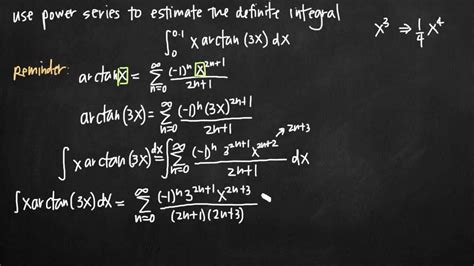 use power series to estimate the definite integral
∫₀^0.1 x arctan(3x) dx
x³ ⇒ 1/4 x⁴
Reminder: arctan x = ∑_{n=0}^∞ (-1)ⁿ x^{2n+1} / 2n+1
arctan(3x) = ∑_{n=0}^∞ (-1)ⁿ (3x)^{2n+1} / 2n+1
∫ x arctan(3x) dx = ∫ ∑_{n=0}^∞ (-1)ⁿ 3^{2n+1} x^{2n+2} / 2n+1 dx
→ 2n+3
∫ x arctan(3x) dx = ∑_{n=0}^∞ (-1)ⁿ 3^{2n+1} x^{2n+3} / (2n+1)(2n+3)